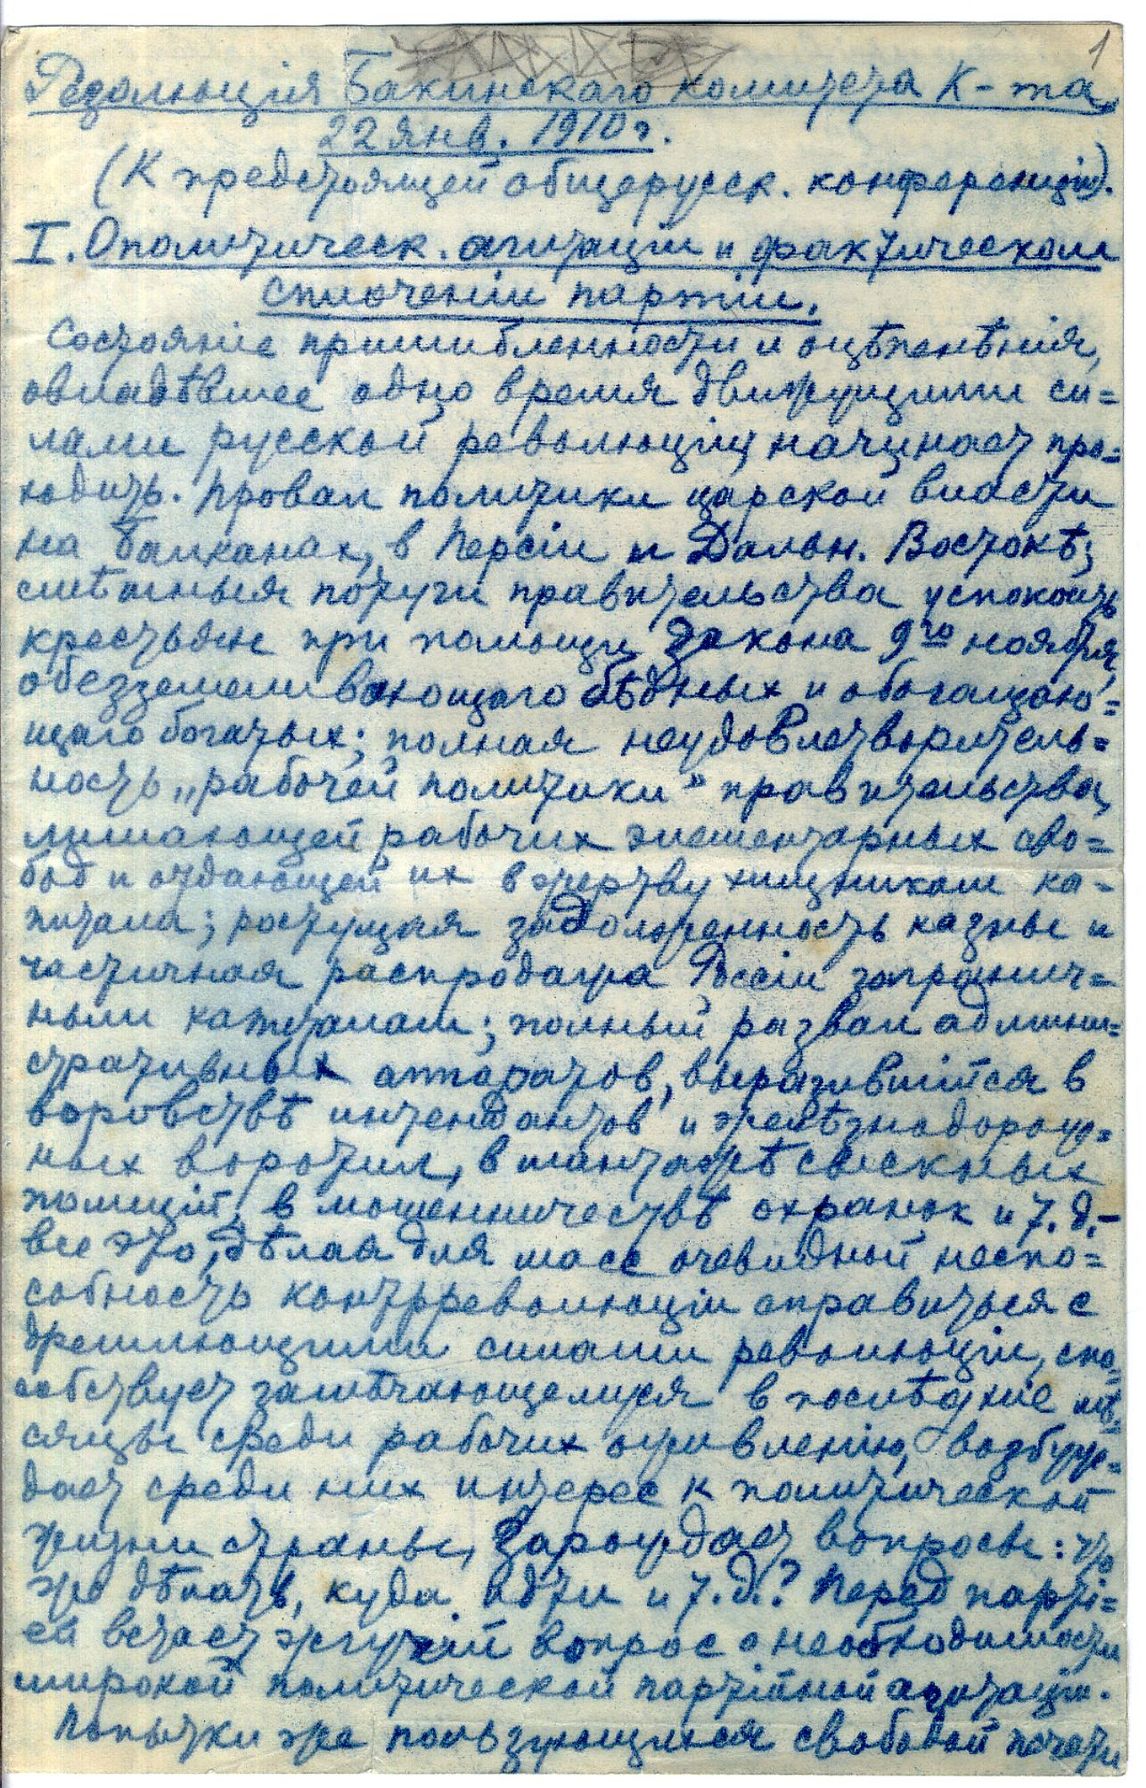 1
Резолюція Бакинскаго комитета К-та
22 янв. 1910 г.
(К предстоящей общерусск. конференціи).
I. О политическ. агитаціи и фактическом
сплоченіи партіи.
Состояніе пришибленности и оцѣпенѣнія,
овладѣвшее одно время движущими си=
лами русской революціи, начинает про=
ходить. Провал политики царской власти
на Балканах, в Персіи и Дальн. Востокѣ;
смѣшныя потуги правительства успокоить
крестьян при помощи закона 9го ноября,
обезземеливающаго бѣдных и обогащаю=
щаго богатых; полная неудовлетворитель=
ность „рабочей политики" правительства,
лишающей рабочих элементарных сво=
бод и отдающей их в жертву хищникам ка-
питала; ростущая задолженность казны и
частичная распродажа Россіи загранич=
ным капиталам; полный развал админи=
стративных аппаратов, выразившійся в
воровствѣ интендантов и желѣзнодорож=
ных воротил, в шантажѣ сыскных
полицій, в мошенничествѣ охранок и т. д. –
все это, дѣлая для масс очевидной неспо=
собность контрреволюціи справиться с
дремлющими силами революціи, спо=
собствует замѣчающемуся в послѣдніе мѣ=
сяцы среди рабочих оживленію, возбуж=
дает среди них интерес к политической
жизни страны, зарождает вопросы: что
же дѣлать, куда идти и т. д.? Перед парті=
ей встает жгучій вопрос о необходимости
широкой политической партійной агитаціи.
Попытки же пользующихся свободой печати